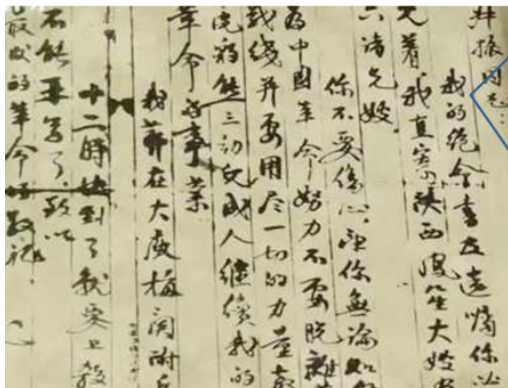 并振国兄:
我的绝命书及遗嘱你必
着我直寄陕西凤笙大嫂
六诸兄嫂
你不要伤心,望你无论如
为中国革命努力不要脱离
战线并要用尽一切的力量教
豹熊三幼儿成人继续我的
革命的事业
我葬在大庾梅关附
十二时快到了就要上杀
不能再写了,致以
最后的革命的敬礼